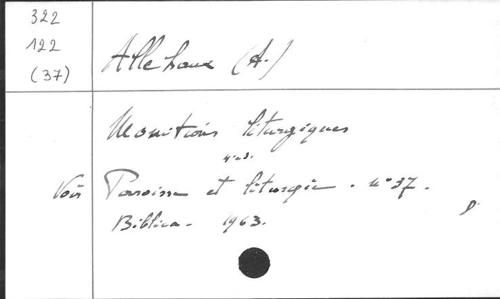 322
122
(37)
Allehaux (A.)
Monitions liturgiques
n°3.
Voir Paroisse et liturgie. n°37.
Biblica - 1963.